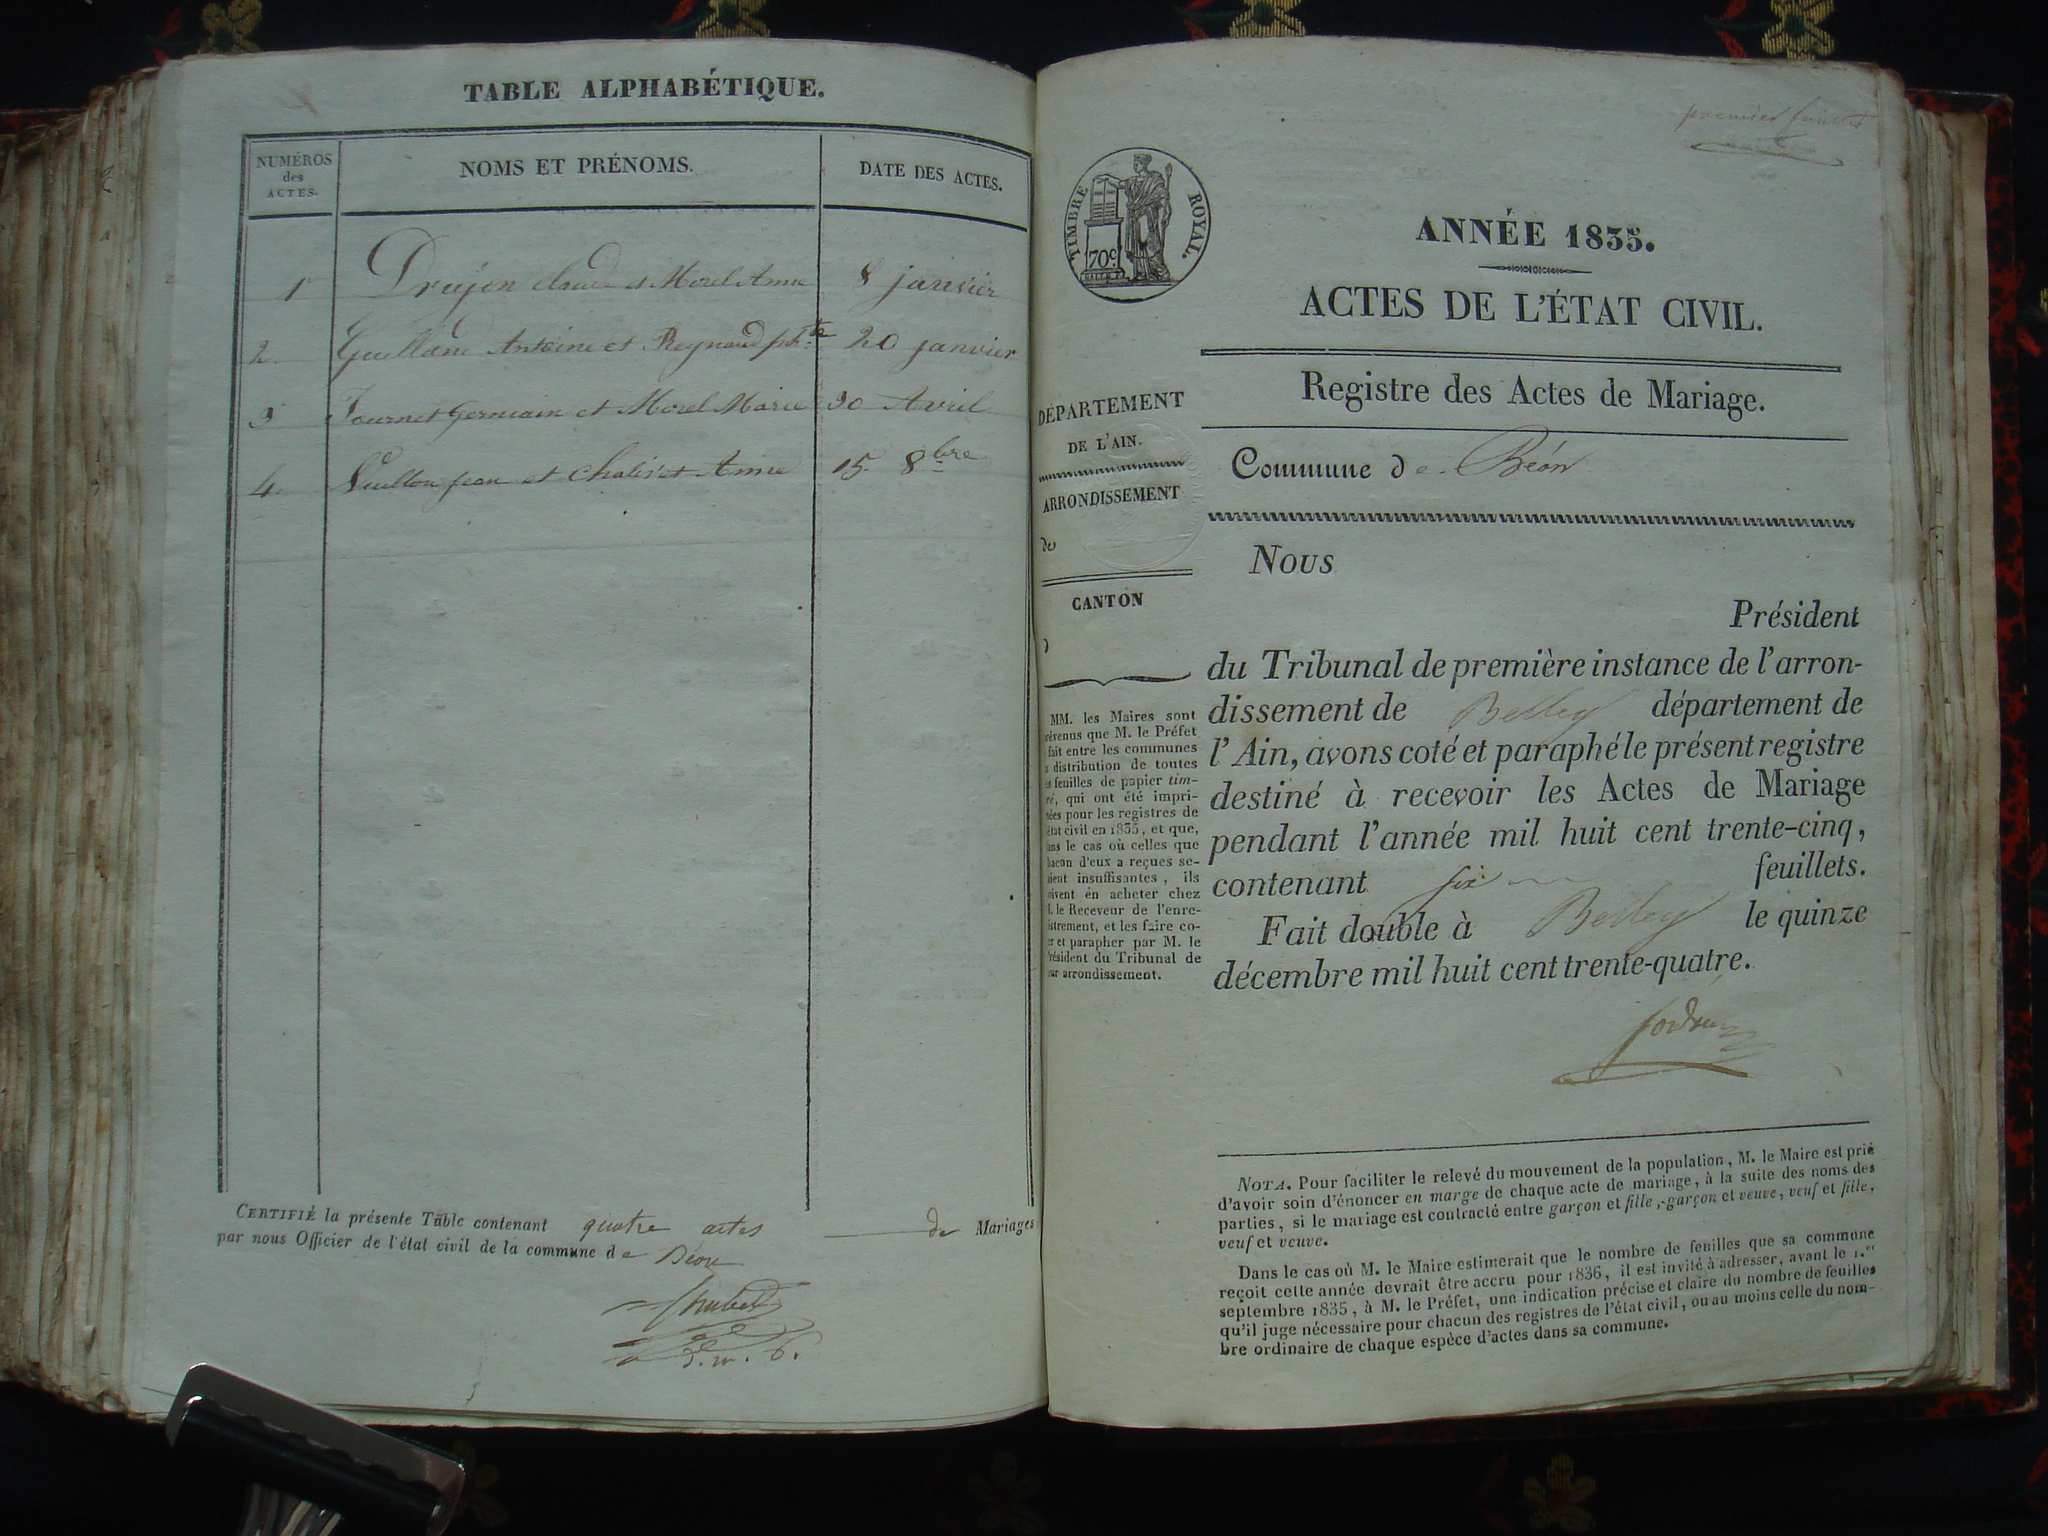 TABLE ALPHABÉTIQUE.
NUMÉROS des ACTES. NOMS ET PRÉNOMS. DATE DES ACTES.
1 Drujon Claude et Morel Anne 8 janvier
2. Antoine et Reynaud 20 janvier
3 Fournet Germain et Morel Marie 30 Avril
4. Jean et Anne 15 8bre
CERTIFIÉ la présente Table contenant quatre actes de Mariages
par nous Officier de l'état civil de la commune de Béon
premier feuillet
TIMBRE ROYAL.
70c
ANNÉE 1835.
ACTES DE L'ÉTAT CIVIL.
Registre des Actes de Mariage.
Commune de Béon
DÉPARTEMENT
DE L'AIN.
ARRONDISSEMENT
de
CANTON
d
MM. les Maires sont
prévenus que M. le Préfet
fait entre les communes
la distribution de toutes
les feuilles de papier tim-
bré, qui ont été impri-
mées pour les registres de
l'état civil en 1835, et que,
dans le cas où celles que
chacun d'eux a reçues se-
raient insuffisantes, ils
doivent en acheter chez
M. le Receveur de l'enre-
gistrement, et les faire co-
ter et parapher par M. le
Président du Tribunal de
leur arrondissement.
Nous
Président
du Tribunal de première instance de l'arron-
dissement de Belley département de
l'Ain, avons coté et paraphé le présent registre
destiné à recevoir les Actes de Mariage
pendant l'année mil huit cent trente-cinq,
contenant six feuillets.
Fait double à Belley le quinze
décembre mil huit cent trente-quatre.
NOTA. Pour faciliter le relevé du mouvement de la population, M. le Maire est prié
d'avoir soin d'énoncer en marge de chaque acte de mariage, à la suite des noms des
parties, si le mariage est contracté entre garçon et fille, garçon et veuve, veuf et fille,
veuf et veuve.
Dans le cas où M. le Maire estimerait que le nombre de feuilles que sa commune
reçoit cette année devrait être accru pour 1836, il est invité à adresser, avant le 1.er
septembre 1835, à M. le Préfet, une indication précise et claire du nombre de feuilles
qu'il juge nécessaire pour chacun des registres de l'état civil, ou au moins celle du nom-
bre ordinaire de chaque espèce d'actes dans sa commune.